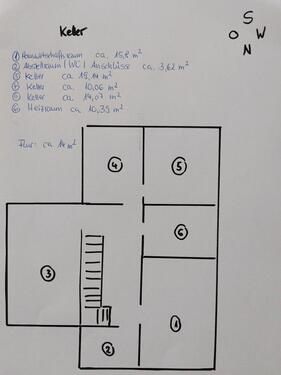 Keller
S
O W
N
① Hauswirtschaftsraum ca. 15,8 m²
② Abstellraum (WC) Anschlüsse ca. 3,62 m²
③ Keller ca. 18,14 m²
④ Keller ca. 10,06 m²
⑤ Keller ca. 14,07 m²
⑥ Heizraum ca. 10,35 m²
Flur: ca 14 m²
④ ⑤
⑥
③
①
②